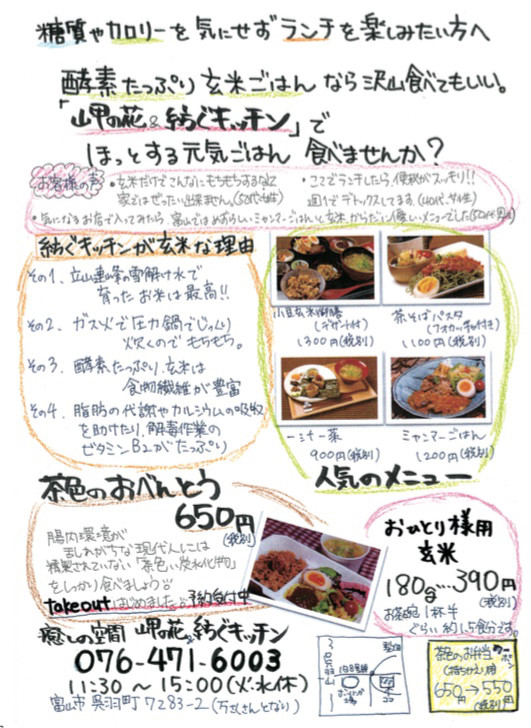 糖質やカロリーを気にせずランチを楽しみたい方へ
酵素たっぷり玄米ごはんなら沢山食べてもいい。
「岬の花&紡ぐキッチン」で
ほっとする元気ごはん 食べませんか?
お客様の声
・玄米だけでこんなにもちもちするなんて
家ではぜったい出来ません。(50代女性)
・ここでランチしたら、便秘がスッキリ!!
週1でデトックスしてます。
・気になるお店で入ってみたら、富山ではめずらしいミャンマーごはんと玄米、からだに優しいメニューでした
紡ぐキッチンが玄米な理由
その1、立山連峰の雪解け水で
育ったお米は最高!!
その2、ガス火で圧力鍋でじっくり
炊くのでもちもち。
その3、酵素たっぷり玄米は
食物繊維が豊富
その4、脂肪の代謝やカルシウムの吸収
を助けたり、解毒作業の
ビタミンB2がたっぷり
小豆玄米御膳
(デザート付)
1300円(税別)
茶そばパスタ
(フォカッチャ付き)
1100円(税別)
一汁一菜
900円(税別)
ミャンマーごはん
1200円(税別)
人気のメニュー
茶色のおべんとう
650円
(税別)
腸内環境が
乱れがちな現代人には
精製されていない「茶色い炭水化物」
をしっかり食べましょう
takeoutはじめました。予約受付中
おひとり様用
玄米
180g…390円
(税別)
お茶碗1杯半
ぐらい 約1.5食分です。
癒しの空間 岬の花&紡ぐキッチン
076-471-6003
11:30~15:00(火・水休)
富山市呉羽町7283-2(万さんとなり)
呉羽山
茶色のお弁当クーポン
(持ち帰り用)
650円→550円
(税別)